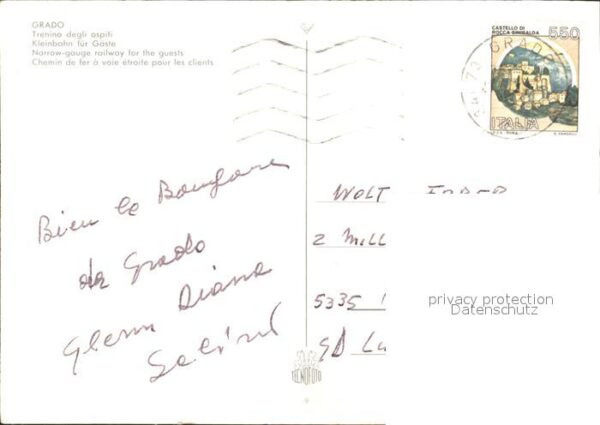 GRADO
Trenino degli ospiti
Kleinbahn für Gäste
Narrow-gauge railway for the guests
Chemin de fer à voie étroite pour les clients
CASTELLO DI
ROCCA SINIBALDA
550
GRADO
ITALIA
Bien le Bonjour
de Grado
Glenn Diana
WOLT
2 MILL
5335
GD Lu
privacy protection
Datenschutz
TECNOFOTO